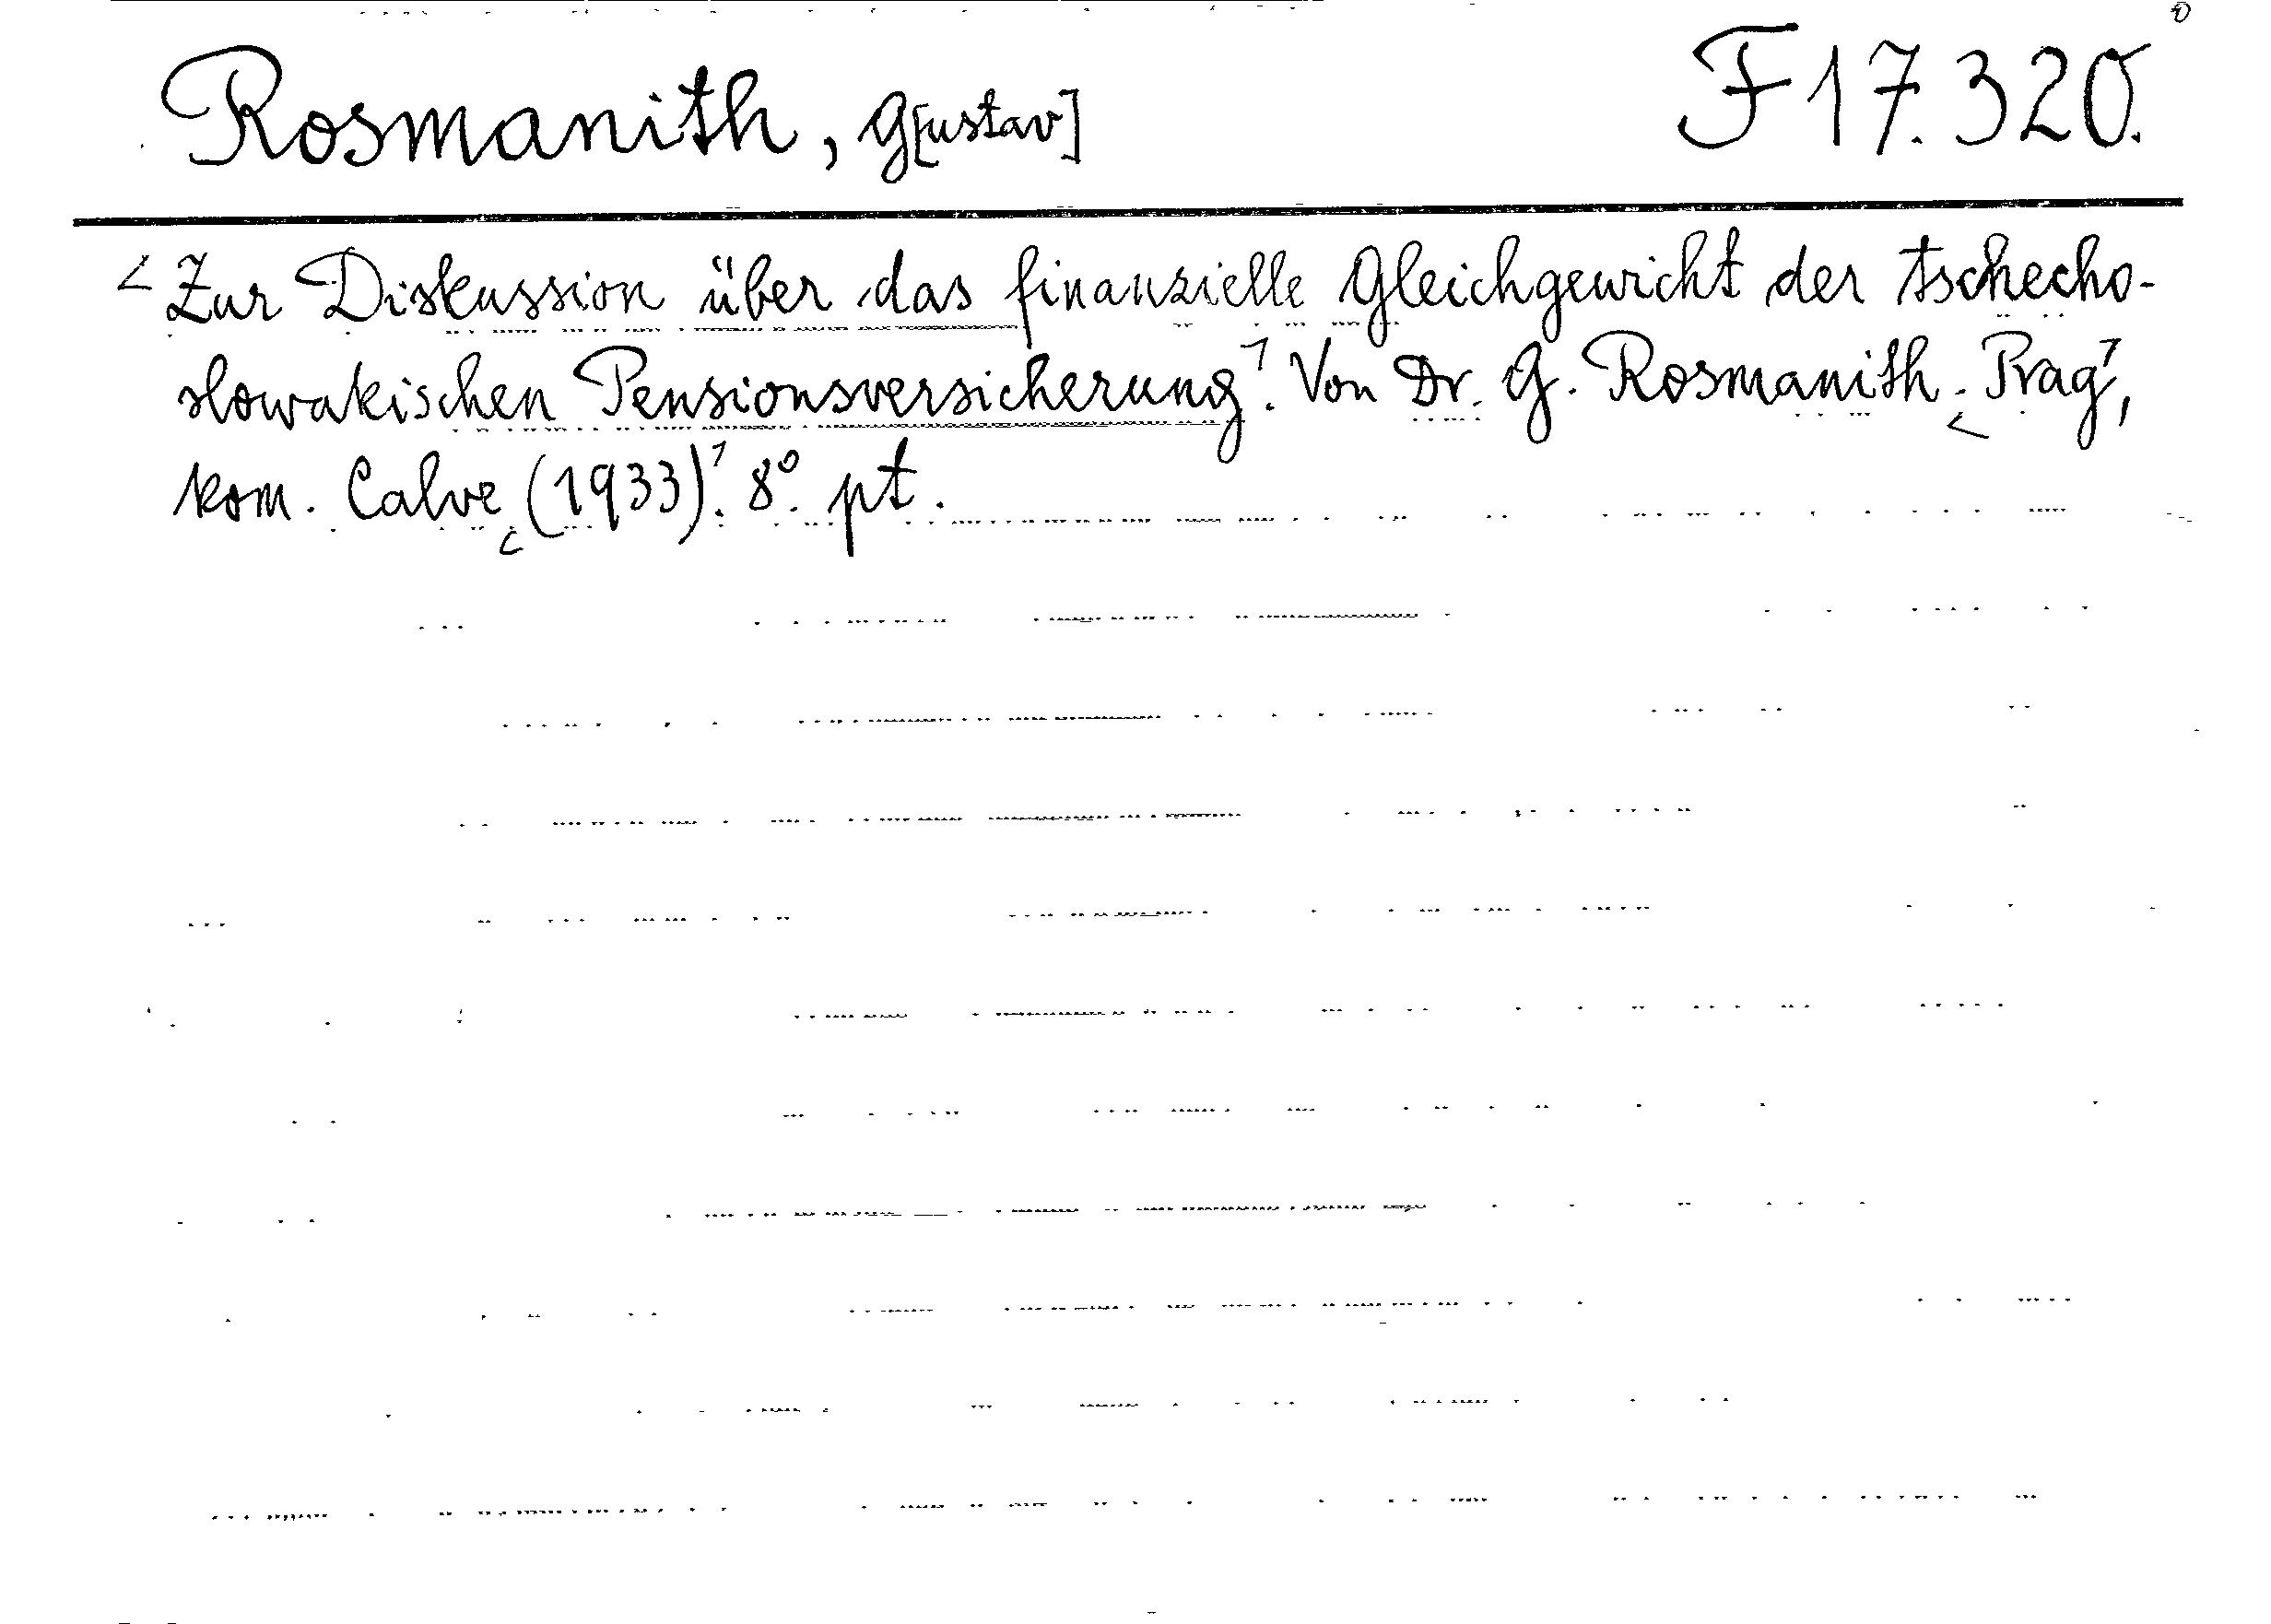 Rosmanith, G[ustav] F 17.320.
Zur Diskussion über das finanzielle Gleichgewicht der tschecho-
slowakischen Pensionsversicherung. Von Dr. G. Rosmanith. Prag,
kom. Calve (1933). 8°. pt.